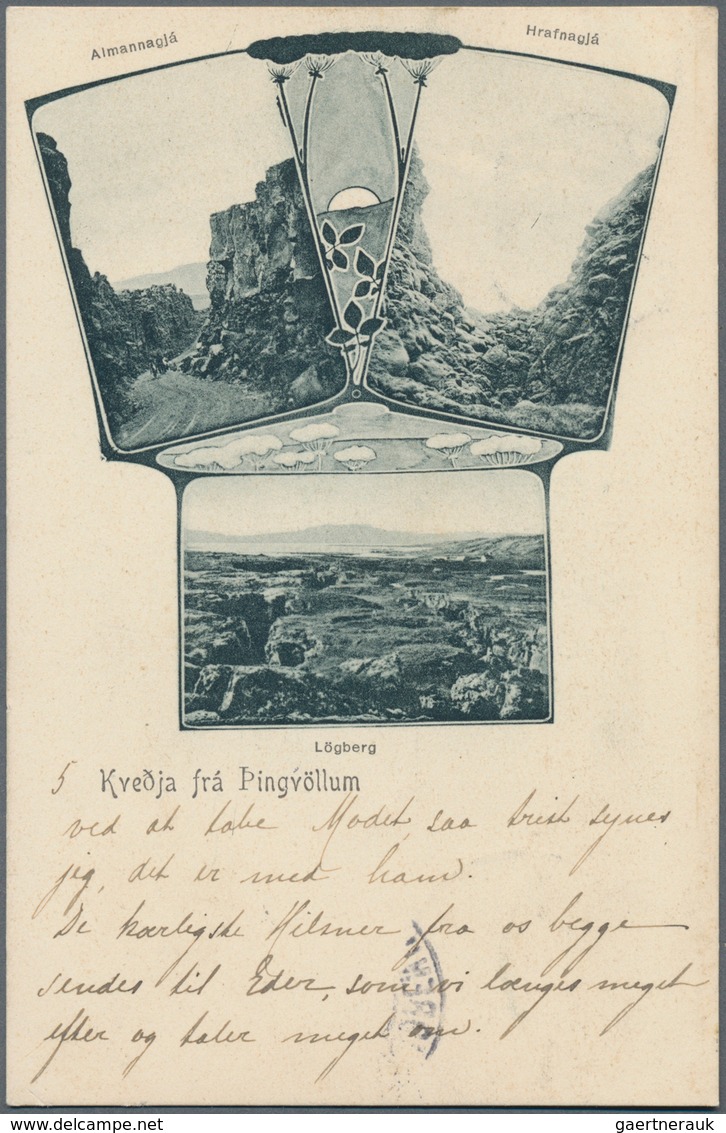 Almannagjá
Hrafnagjá
Lögberg
5 Kveðja frá Þingvöllum
ved at tabe Modet, saa trist synes
jeg, det er med ham.
De kærligste Hilsner fra os begge
sendes til Eder, som vi længes meget
efter og taler meget om.
gaertnerauk